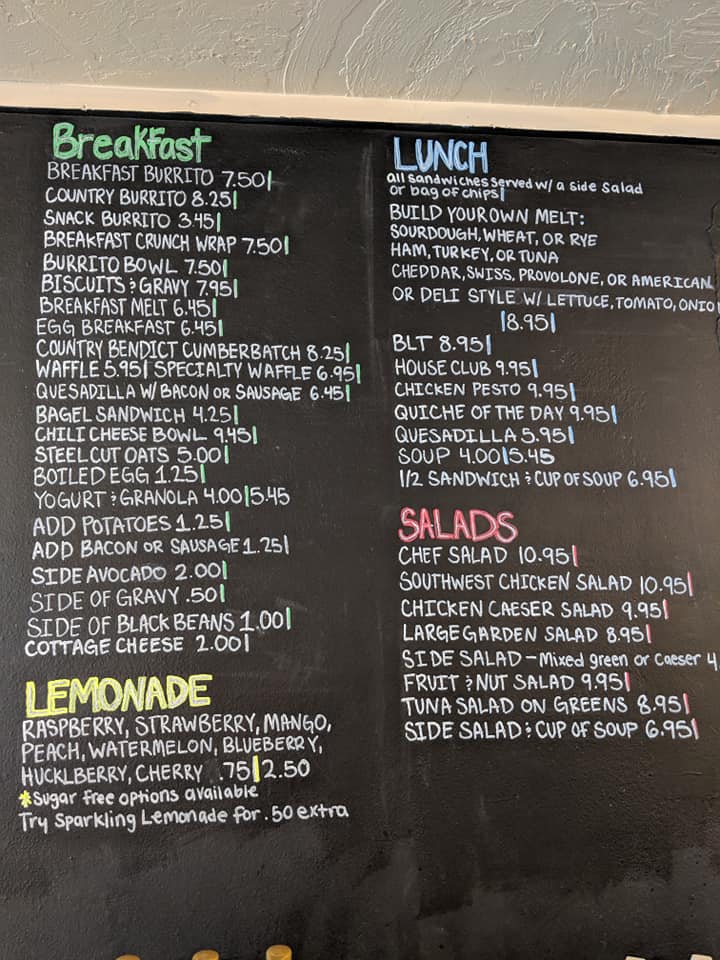 Breakfast
BREAKFAST BURRITO 7.50|
COUNTRY BURRITO 8.25|
SNACK BURRITO 3.45|
BREAKFAST CRUNCH WRAP 7.50|
BURRITO BOWL 7.50|
BISCUITS & GRAVY 7.95|
BREAKFAST MELT 6.45|
EGG BREAKFAST 6.45|
COUNTRY BENDICT CUMBERBATCH 8.25|
WAFFLE 5.95| SPECIALTY WAFFLE 6.95|
QUESADILLA W/ BACON OR SAUSAGE 6.45|
BAGEL SANDWICH 4.25|
CHILI CHEESE BOWL 9.45|
STEEL CUT OATS 5.00|
BOILED EGG 1.25|
YOGURT & GRANOLA 4.00|5.45
ADD POTATOES 1.25|
ADD BACON OR SAUSAGE 1.25|
SIDE AVOCADO 2.00|
SIDE OF GRAVY .50|
SIDE OF BLACK BEANS 1.00|
COTTAGE CHEESE 2.00|
LEMONADE
RASPBERRY, STRAWBERRY, MANGO,
PEACH, WATERMELON, BLUEBERRY,
HUCKLBERRY, CHERRY .75|2.50
*Sugar free options available
Try Sparkling Lemonade for .50 extra
LUNCH
all sandwiches served w/ a side salad
or bag of chips|
BUILD YOUR OWN MELT:
SOURDOUGH, WHEAT, OR RYE
HAM, TURKEY, OR TUNA
CHEDDAR, SWISS, PROVOLONE, OR AMERICAN
OR DELI STYLE W/ LETTUCE, TOMATO, ONIO
|8.95|
BLT 8.95|
HOUSE CLUB 9.95|
CHICKEN PESTO 9.95|
QUICHE OF THE DAY 9.95|
QUESADILLA 5.95|
SOUP 4.00|5.45
1/2 SANDWICH & CUP OF SOUP 6.95|
SALADS
CHEF SALAD 10.95|
SOUTHWEST CHICKEN SALAD 10.95|
CHICKEN CAESER SALAD 9.95|
LARGE GARDEN SALAD 8.95|
SIDE SALAD - Mixed green or Caeser 4
FRUIT & NUT SALAD 9.95|
TUNA SALAD ON GREENS 8.95|
SIDE SALAD & CUP OF SOUP 6.95|